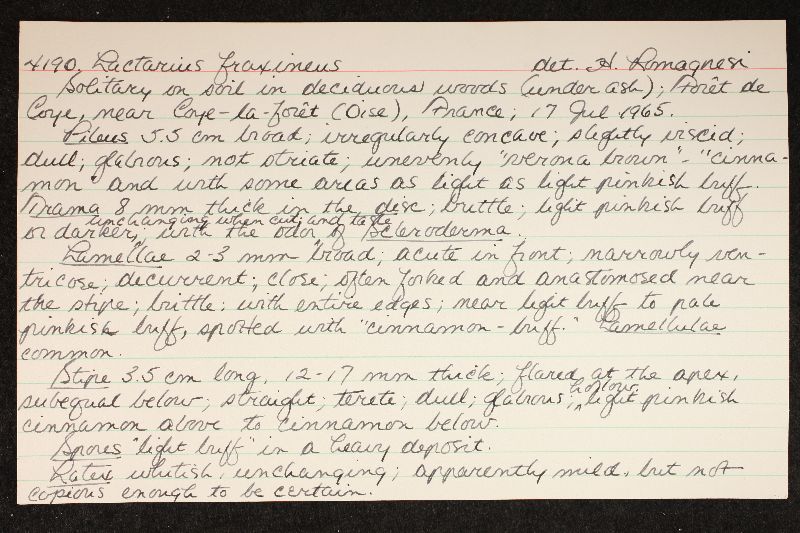 4190. Lactarius fraxineus det. H. Romagnesi
Solitary on soil in deciduous woods (under ash); Forêt de
Coye, near Coye-la-forêt (Oise), France; 17 Jul 1965.
Pileus 5.5 cm broad; irregularly concave; slightly viscid;
dull; glabrous; not striate; unevenly "verona brown"-"cinna-
mon" and with some areas as light as light pinkish buff.
Trama 8 mm thick in the disc; brittle; light pinkish buff
unchanging when cut; and taste
or darker, with the odor of Scleroderma.
Lamellae 2-3 mm broad; acute in front; narrowly ven-
tricose; decurrent; close; often forked and anastomosed near
the stipe; brittle; with entire edges; near light buff to pale
pinkish buff, spotted with "cinnamon-buff." Lamellulae
common.
Stipe 3.5 cm long, 12-17 mm thick; flared at the apex,
subequal below; straight; terete; dull; glabrous; hollow; light pinkish
cinnamon above to cinnamon below.
Spores "light buff" in a heavy deposit.
Latex whitish, unchanging; apparently mild, but not
copious enough to be certain.